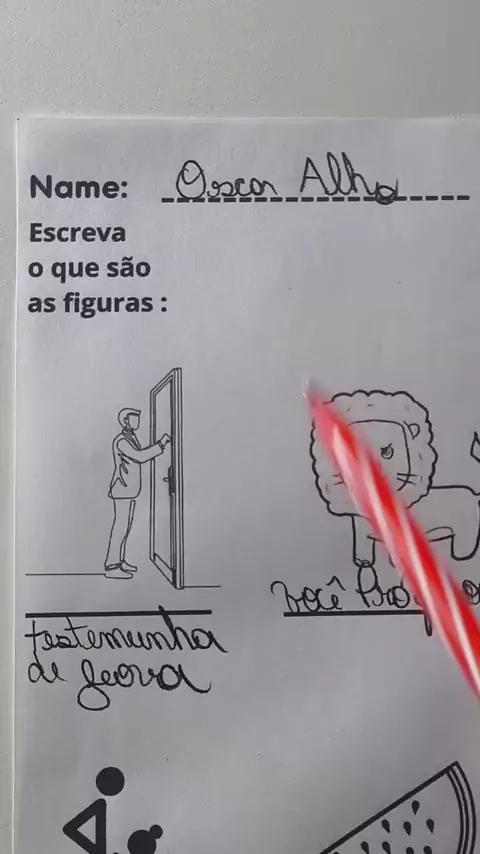 Name: Oscar Alho
Escreva
o que são
as figuras :
você
testemunha
de jeova